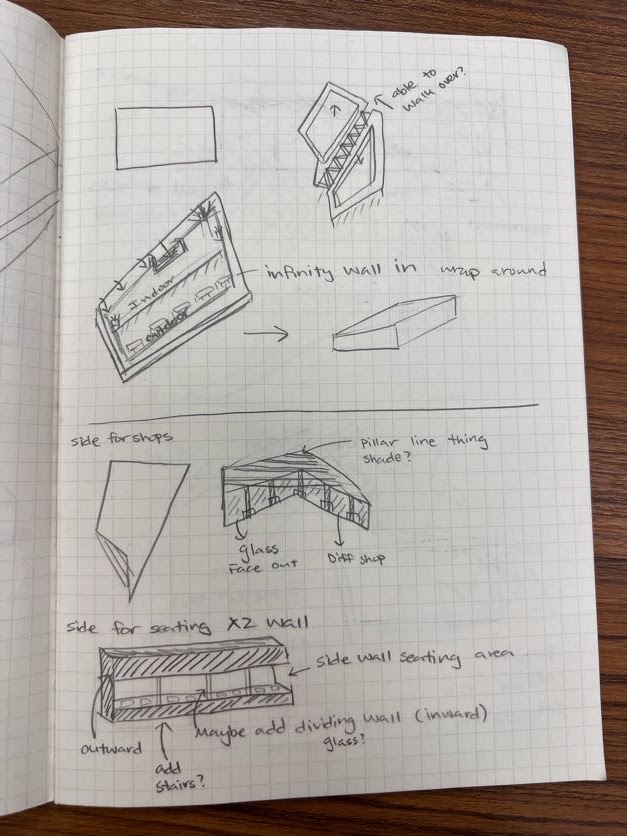 able to
walk over?
infinity wall in wrap around
Indoor
outdoor
side for shops
Pillar line thing
shade?
glass
Face out
Diff shop
side for seating X2 wall
side wall seating area
Maybe add dividing wall (inward)
glass?
outward
add
stairs?